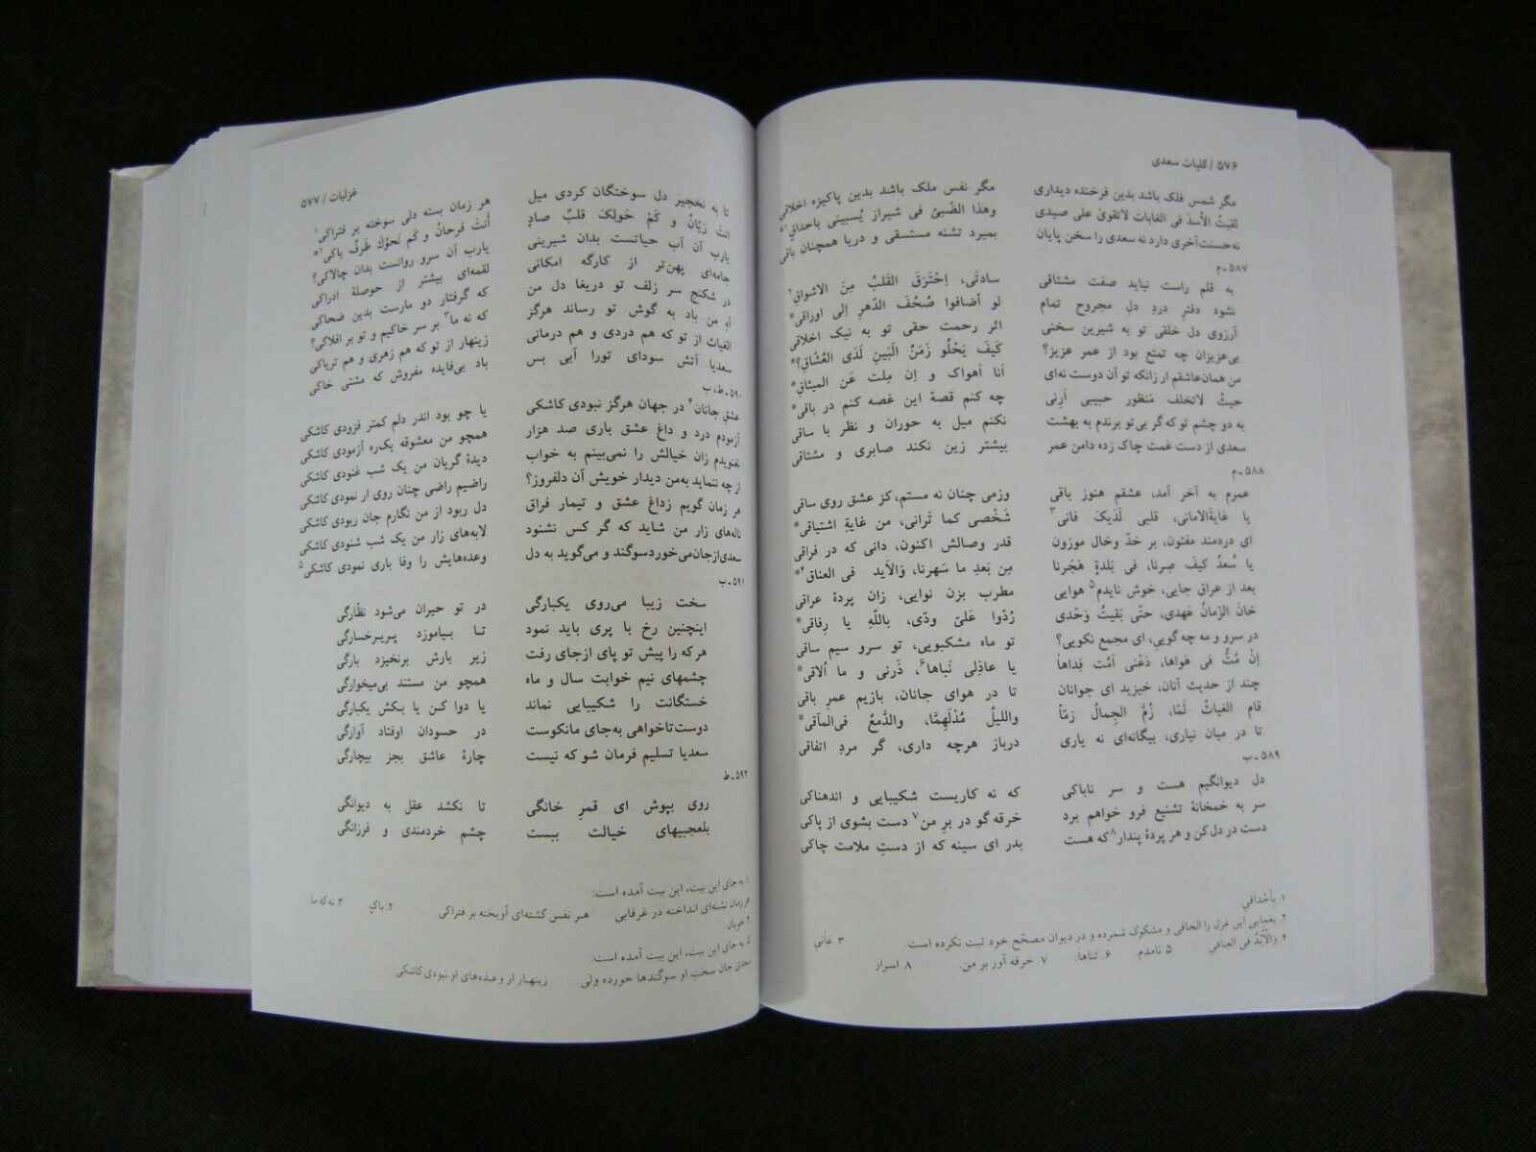 ۵۷۶ / کلیات سعدی
مگر شمس فلک باشد بدین فرخنده دیداری مگر نفس ملک باشد بدین پاکیزه اخلاقی
لقیتُ الأسدَ فی الغابات لاتقویٰ علی صیدی وهذا الظّبیُ فی شیراز یُسبینی باحداقٍ۱*
نه‌حسنت‌آخری دارد نه سعدی را سخن پایان بمیرد تشنه مستسقی و دریا همچنان باقی
۵۸۷ـ م
به قلم راست نیاید صفت مشتاقی سادتی، اِحتَرَقَ القَلبُ مِنَ الاشواقِ۲
نشود دفترِ دردِ دلِ مجروح تمام لو أضافوا صُحُفَ الدَّهرِ اِلی اوراقی*
آرزوی دل خلقی تو به شیرین سخنی اثر رحمت حقی تو به نیک اخلاقی
بی‌عزیزان چه تمتع بود از عمر عزیز؟ کَیفَ یَحْلُو زَمَنُ الْبَینِ لَدَی العُشّاقِ؟*
من همان‌عاشقم ار زانکه تو آن دوست نه‌ای أنا أهواک و إن مِلت عَن المیثاقِ*
حیثُ لاتخلف مَنظور حبیبی أرِنی چه کنم قصهٔ این غصه کنم در باقی*
به دو چشم تو که گر بی‌تو برندم به بهشت نکنم میل به حوران و نظر با ساقی
سعدی از دست غمت چاک زده دامن عمر بیشتر زین نکند صابری و مشتاقی
۵۸۸ـ م
عمرم به آخر آمد، عشقم هنوز باقی وزمی چنان نه مستم، کز عشق روی ساقی
یا غایةَالامانی، قلبی لَدَیکَ فانی۳ شَخْصی کما تَرانی، من غایةِ اشتیاقی*
ای دردمند مفتون، بر خدّ وخال موزون قدر وصالش اکنون، دانی که در فراقی
یا سُعدُ کیفَ صِرنا، فی بَلدةٍ هَجَرنا مِن بَعدِ ما سَهِرنا، وَالأید فی العناقِ۴*
بعد از عراق جایی، خوش نایدم۵ هوایی مطرب بزن نوایی، زان پردهٔ عراقی
خانَ الزّمانُ عَهدی، حتّی بَقیتُ وَحْدی رُدّوا عَلیَّ ودّی، باللّهِ یا رِفاقی*
در سرو و مه چه گویی، ای مجمع نکویی؟ تو ماه مشکبویی، تو سرو سیم ساقی
اِنْ مُتُّ فی هَواها، دَعْنی اَمُت فِداها یا عاذِلی نَباها۶، ذَرنی و ما اُلاقی*
چند از حدیث آنان، خیزید ای جوانان تا در هوای جانان، بازیم عمرِ باقی
قام الغیاثُ لَمّا، زُمَّ الجِمالُ زمّاً واللیلُ مُدْلَهِمَّا، والدَّمعُ فی‌المآقی*
تا در میان نیاری، بیگانه‌ای نه یاری درباز هرچه داری، گر مردِ اتفاقی
۵۸۹ـ ب
دل دیوانگیم هست و سر ناباکی که نه کاریست شکیبایی و اندهناکی
سر به خمخانهٔ تشنیع فرو خواهم برد خرقه گو در برِ من۷ دست بشوی از پاکی
دست در دل‌کن و هر پردهٔ پندار۸که هست بدر ای سینه که از دستِ ملامت چاکی
۱. باَحْداقی
۲. یغمایی این غزل را الحاقی و مشکوک شمرده و در دیوان مصحّح خود ثبت نکرده است ۳. عانی
۴. وَالأیْدُ فی العناقی ۵. نامدم ۶. ثناها ۷. خرقه آور بر من ۸. اسرار
غزلیات / ۵۷۷
تا به نخجیر دل سوختگان کردی میل هر زمان بسته دلی سوخته بر فتراکی۱
انتَ رَیّانُ و کَمْ حَولِکَ قلبٌ صادٍ أنتَ فَرحانُ و کَم نَحوَكَ طَرفٌ باکی۲*
یارب آن آب حیاتست بدان شیرینی یارب آن سرو روانست بدان چالاکی؟
جامه‌ای پهن‌تر از کارگه امکانی لقمه‌ای بیشتر از حوصلهٔ ادراکی
در شکنج سر زلف تو دریغا دل من که گرفتار دو مارست بدین ضحاکی
آه من باد به گوش تو رساند هرگز که نه ما۳ بر سر خاکیم و تو بر افلاکی؟
الغیاث از تو که هم دردی و هم درمانی زینهار از تو که هم زهری و هم تریاکی
سعدیا آتش سودای تورا آبی بس باد بی‌فایده مفروش که مشتی خاکی
۵۹۰ـ ط، ب
عشق جانان۴ در جهان هرگز نبودی کاشکی یا چو بود اندر دلم کمتر فزودی کاشکی
آزمودم درد و داغ عشق باری صد هزار همچو من معشوقه یک‌ره آزمودی کاشکی
نغنویدم زان خیالش را نمی‌بینم به خواب دیدهٔ گریان من یک شب غنودی کاشکی
از چه ننماید به‌من دیدار خویش آن دلفروز؟ راضیم راضی چنان روی ار نمودی کاشکی
هر زمان گویم زداغ عشق و تیمار فراق دل ربود از من نگارم جان ربودی کاشکی
ناله‌های زار من شاید که گر کس نشنود لابه‌های زار من یک شب شنودی کاشکی
سعدی ازجان‌می‌خوردسوگند و می‌گوید به دل وعده‌هایش را وفا باری نمودی کاشکی۵
۵۹۱ـ ب
سخت زیبا می‌روی یکبارگی در تو حیران می‌شود نظّارگی
اینچنین رخ با پری باید نمود تا بیاموزد پریرخسارگی
هرکه را پیش تو پای ازجای رفت زیر بارش برنخیزد بارگی
چشمهای نیم خوابت سال و ماه همچو من مستند بی‌میخوارگی
خستگانت را شکیبایی نماند یا دوا کن یا بکش یکبارگی
دوست‌تاخواهی به‌جای مانکوست در حسودان اوفتاد آوارگی
سعدیا تسلیم فرمان شو که نیست چارهٔ عاشق بجز بیچارگی
۵۹۲ـ ط
روی بپوش ای قمرِ خانگی تا نکشد عقل به دیوانگی
بلعجبیهای خیالت ببست چشم خردمندی و فرزانگی
۱. به جای این بیت، این بیت آمده است:
هرزمان تشنه‌ای انداخته در غرقابی هر نفس کشته‌ای آویخته بر فتراکی ۲. باکٍ ۳. نه‌که ما
۴. خوبان
۵. به جای این بیت، این بیت آمده است:
سعدی جان سخت او سوگندها خورده ولی زینهار از وعده‌های او نبودی کاشکی